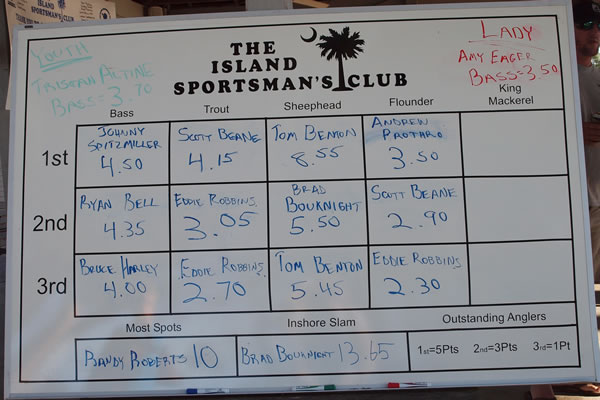 YOUTH
TRISTAN ALTINE
BASS = 3.70
THE
ISLAND
SPORTSMAN'S CLUB
LADY
AMY EAGER
BASS = 3.50
Bass Trout Sheephead Flounder King
Mackerel
1st
JOHNNY
SPITZMILLER
4.50
SCOTT BEANE
4.15
TOM BENTON
8.55
ANDREW
PROTHRO
3.50
2nd
RYAN BELL
4.35
EDDIE ROBBINS
3.05
BRAD
BOUKNIGHT
5.50
SCOTT BEANE
2.90
3rd
BRUCE HARLEY
4.00
EDDIE ROBBINS
2.70
TOM BENTON
5.45
EDDIE ROBBINS
2.30
Most Spots Inshore Slam Outstanding Anglers
RANDY ROBERTS 10
BRAD BOUKNIGHT 13.65
1st=5Pts 2nd=3Pts 3rd=1Pt